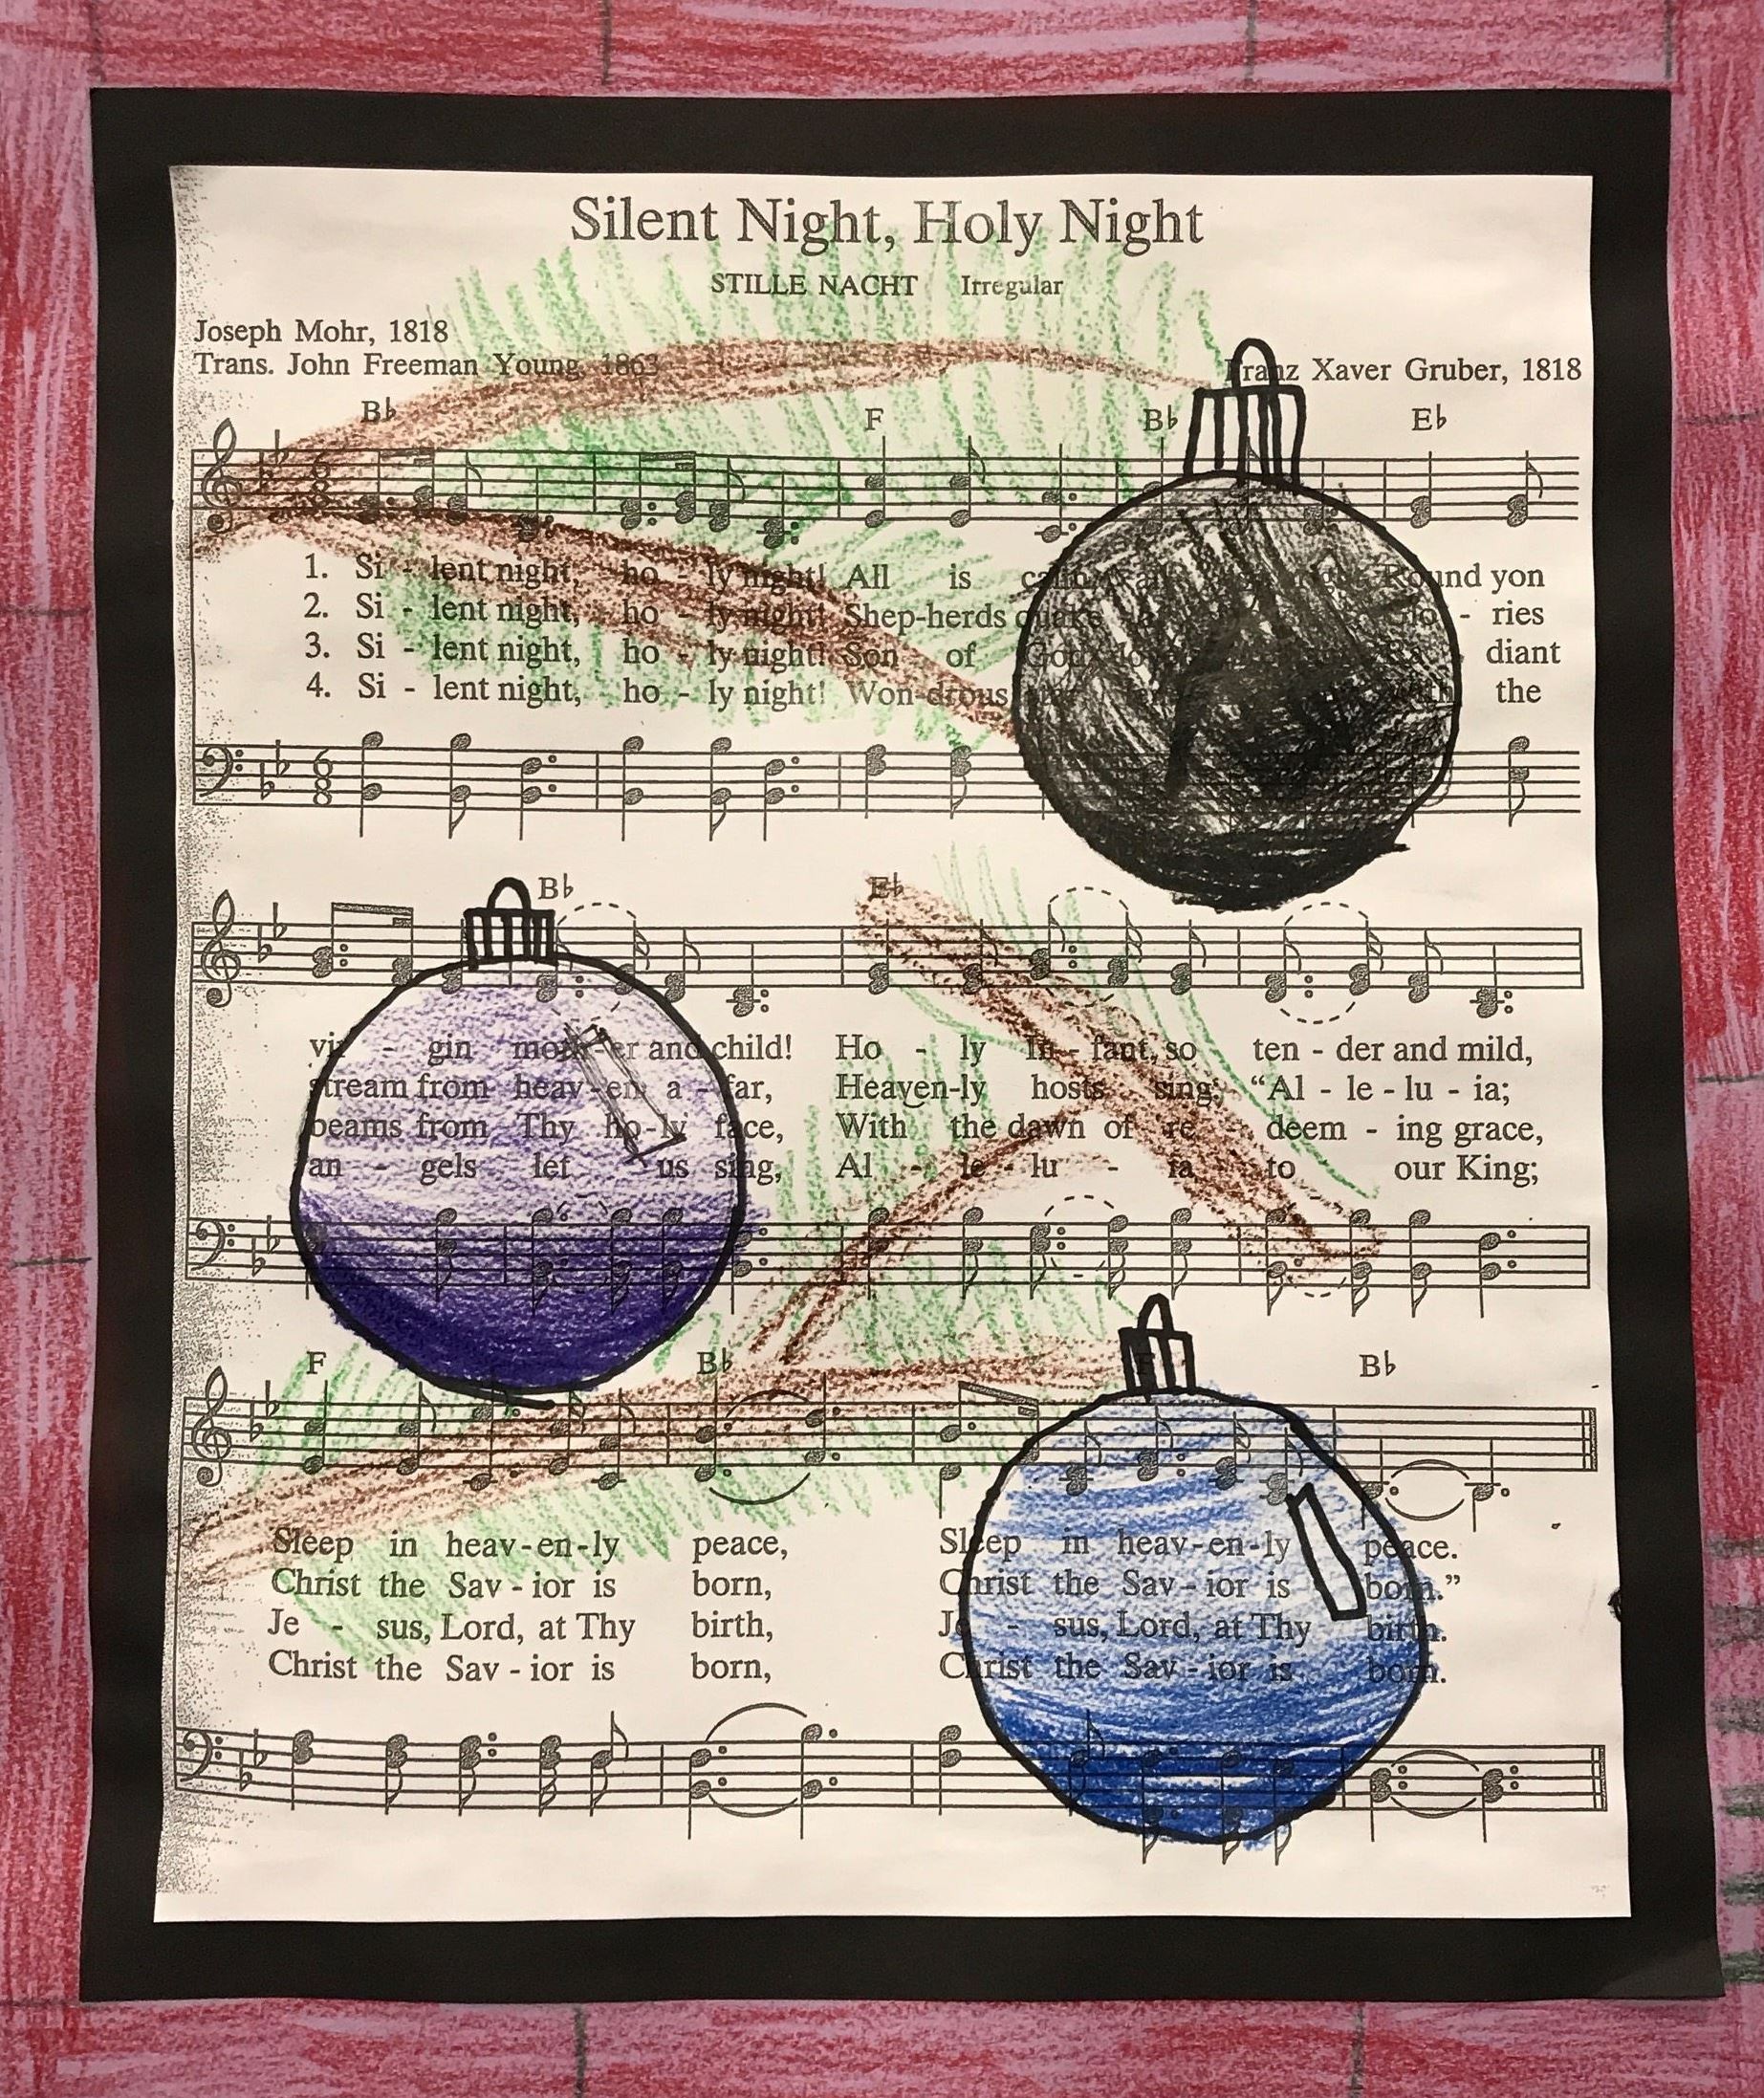 Silent Night, Holy Night
STILLE NACHT Irregular
Joseph Mohr, 1818
Trans. John Freeman Young, 1863
Franz Xaver Gruber, 1818
B♭ F B♭ E♭
6 8
1. Si - lent night, ho - ly night! All is calm, Round yon
2. Si - lent night, ho - ly night! Shep-herds quake - ries
3. Si - lent night, ho - ly night! Son of God, diant
4. Si - lent night, ho - ly night! Won-drous with the
6 8
B♭ E♭
vir - gin moth-er and child! Ho - ly In - fant, so ten - der and mild,
stream from heav-en a - far, Heaven-ly hosts sing, “Al - le - lu - ia;
beams from Thy ho-ly face, With the dawn of re - deem - ing grace,
an - gels let us sing, Al - le - lu - ia to our King;
F B♭ B♭
Sleep in heav-en-ly peace, Sleep in heav-en-ly peace.
Christ the Sav - ior is born, Christ the Sav - ior is born.”
Je - sus, Lord, at Thy birth, Je - sus, Lord, at Thy birth.
Christ the Sav - ior is born, Christ the Sav - ior is born.